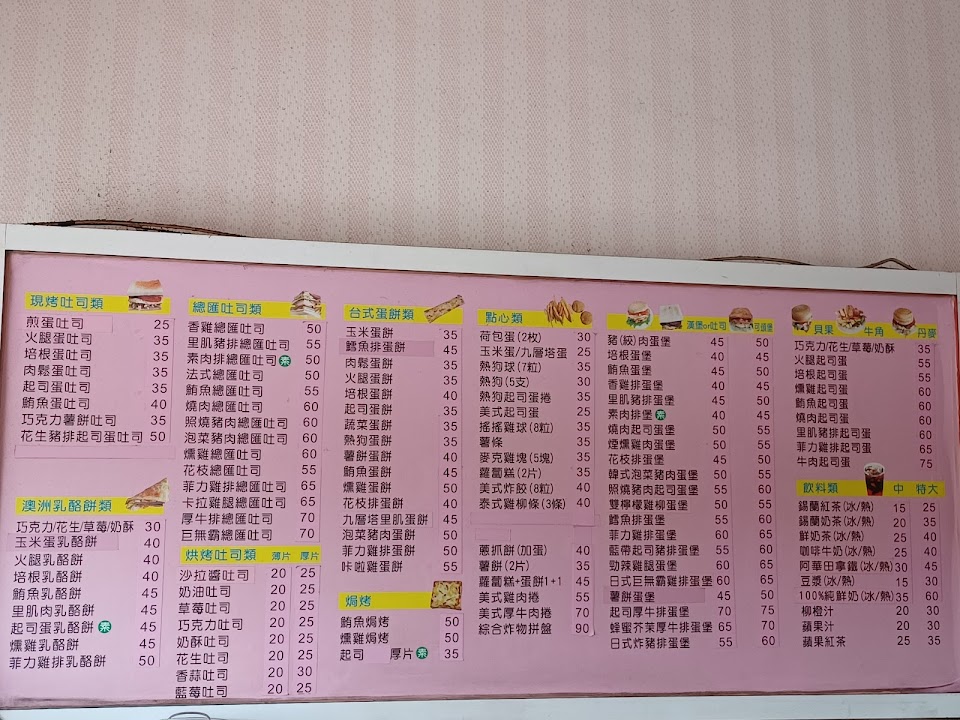 現烤吐司類
煎蛋吐司 25
火腿蛋吐司 35
培根蛋吐司 35
肉鬆蛋吐司 35
起司蛋吐司 35
鮪魚蛋吐司 40
巧克力薯餅吐司 35
花生豬排起司蛋吐司 50
澳洲乳酪餅類
巧克力/花生/草莓/奶酥 30
玉米蛋乳酪餅 40
火腿乳酪餅 40
培根乳酪餅 40
鮪魚乳酪餅 45
里肌肉乳酪餅 45
起司蛋乳酪餅 素 40
燻雞乳酪餅 45
菲力雞排乳酪餅 50
總匯吐司類
香雞總匯吐司 50
里肌豬排總匯吐司 55
素肉排總匯吐司 素 50
法式總匯吐司 50
鮪魚總匯吐司 55
燒肉總匯吐司 60
照燒豬肉總匯吐司 60
泡菜豬肉總匯吐司 60
燻雞總匯吐司 60
花枝總匯吐司 55
菲力雞排總匯吐司 65
卡拉雞腿總匯吐司 65
厚牛排總匯吐司 70
巨無霸總匯吐司 70
烘烤吐司類 薄片 厚片
沙拉醬吐司 20 25
奶油吐司 20 25
草莓吐司 20 25
巧克力吐司 20 25
奶酥吐司 20 25
花生吐司 20 25
香蒜吐司 20 30
藍莓吐司 20 25
台式蛋餅類
玉米蛋餅 35
鱈魚排蛋餅 45
肉鬆蛋餅 35
火腿蛋餅 35
培根蛋餅 40
起司蛋餅 35
蔬菜蛋餅 35
熱狗蛋餅 35
薯餅蛋餅 40
鮪魚蛋餅 45
燻雞蛋餅 50
花枝排蛋餅 40
九層塔里肌蛋餅 45
泡菜豬肉蛋餅 50
菲力雞排蛋餅 50
咔啦雞蛋餅 55
焗烤
鮪魚焗烤 50
燻雞焗烤 50
起司 厚片 素 35
點心類
荷包蛋(2枚) 30
玉米蛋/九層塔蛋 25
熱狗球(7粒) 35
熱狗(5支) 30
熱狗起司蛋捲 40
美式起司蛋 25
搖搖雞球(8粒) 35
薯條 35
麥克雞塊(5塊) 35
蘿蔔糕(2片) 35
美式炸餃(8粒) 40
泰式雞柳條(3條) 40
蔥抓餅(加蛋) 40
薯餅(2片) 35
蘿蔔糕+蛋餅1+1 45
美式雞肉捲 55
美式厚牛肉捲 70
綜合炸物拼盤 90
漢堡or吐司 可頌堡
豬(絞)肉蛋堡 45 50
培根蛋堡 40 45
鮪魚蛋堡 45 50
香雞排蛋堡 40 45
里肌豬排蛋堡 45 50
素肉排堡 素 40 45
燒肉起司蛋堡 50 55
煙燻雞肉蛋堡 50 55
花枝排蛋堡 45 50
韓式泡菜豬肉蛋堡 50 55
照燒豬肉起司蛋堡 55 60
雙檸檬雞柳蛋堡 50 55
鱈魚排蛋堡 55 60
菲力雞排蛋堡 60 65
藍帶起司豬排蛋堡 55 60
勁辣雞腿蛋堡 60 65
日式巨無霸雞排蛋堡 60 65
薯餅蛋堡 45 50
起司厚牛排蛋堡 70 75
蜂蜜芥茉厚牛排蛋堡 65 70
日式炸豬排蛋堡 55 60
貝果 牛角 丹麥
巧克力/花生/草莓/奶酥 35
火腿起司蛋 55
培根起司蛋 55
燻雞起司蛋 60
鮪魚起司蛋 60
燒肉起司蛋 60
里肌豬排起司蛋 60
菲力雞排起司蛋 65
牛肉起司蛋 75
飲料類 中 特大
錫蘭紅茶(冰/熱) 15 25
錫蘭奶茶(冰/熱) 20 35
鮮奶茶(冰/熱) 25 40
咖啡牛奶(冰/熱) 25 40
阿華田拿鐵(冰/熱) 30 45
豆漿(冰/熱) 15 30
100%純鮮奶(冰/熱) 35 60
柳橙汁 20 30
蘋果汁 20 30
蘋果紅茶 25 35